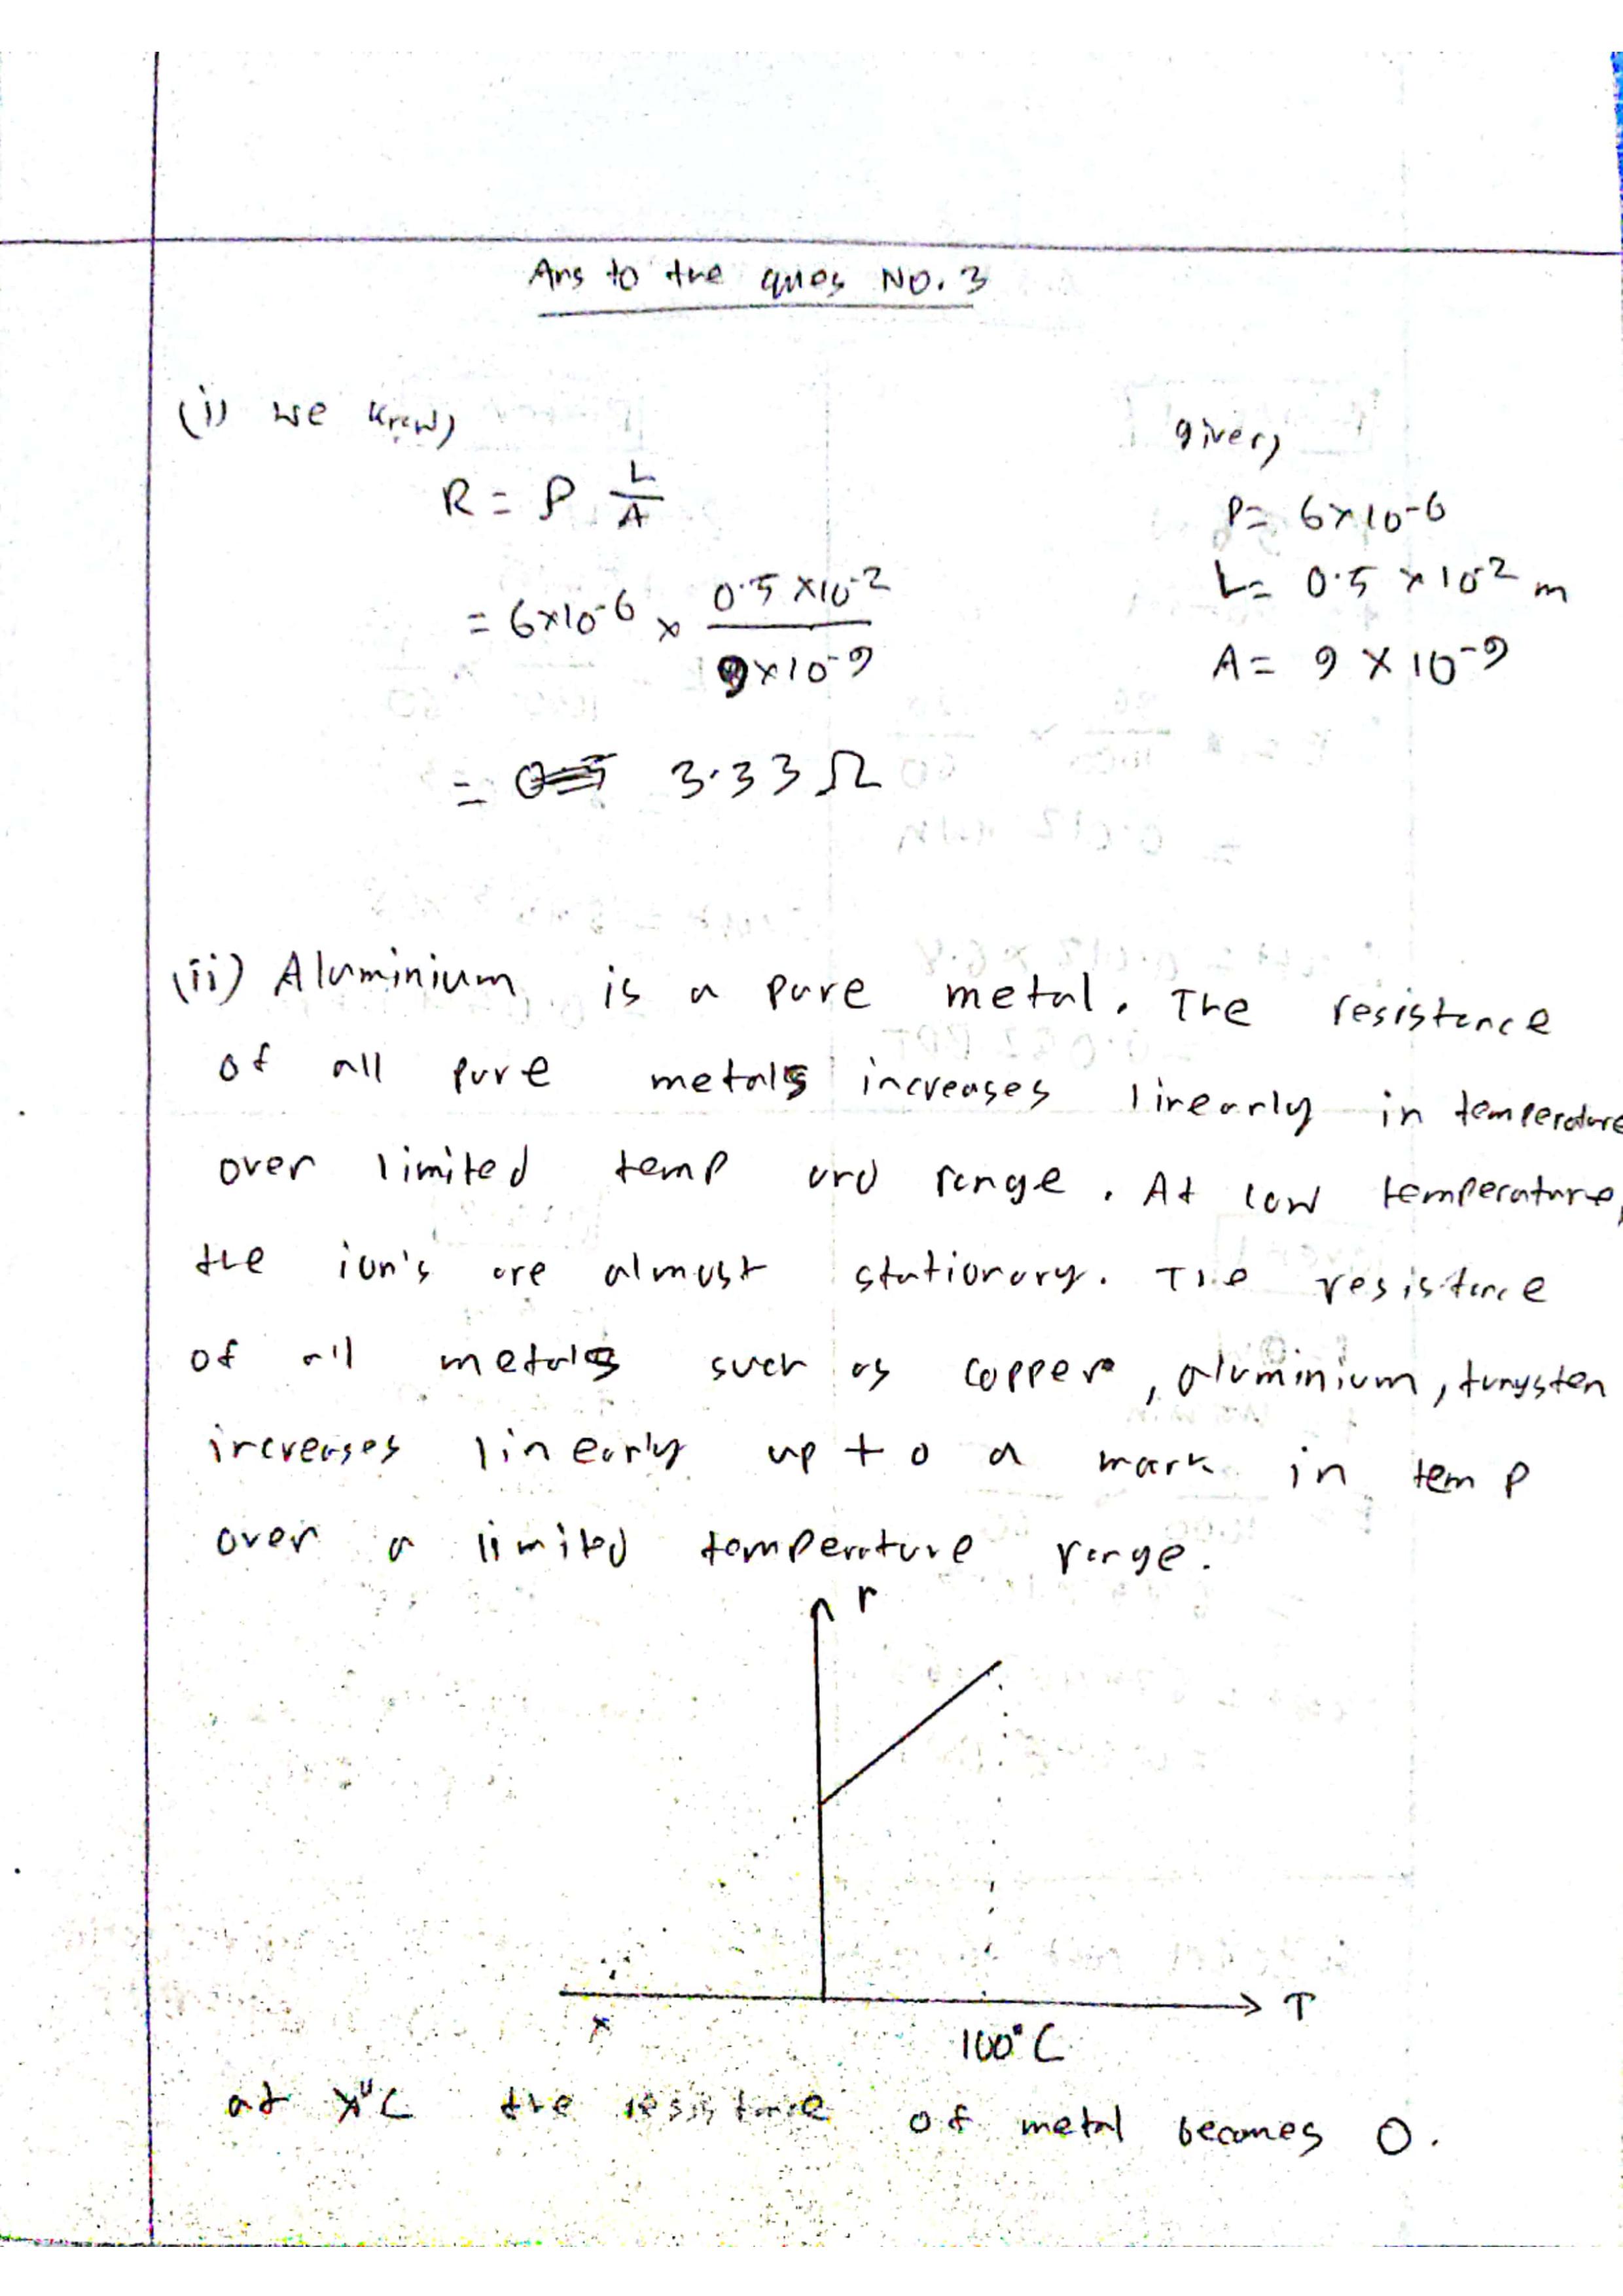 Ans to the ques No. 3
(i) we know,
given,
R = ρ L/A
ρ = 6×10-6
= 6×10-6 × 0.5 ×10-2 / 9×10-9
L = 0.5 × 10-2 m
A = 9 × 10-9
= 3.33 Ω
(ii) Aluminium is a pure metal. The resistance
of all pure metals increases linearly in temperature
over limited temp and range. At low temperature,
the ion's are almost stationary. The resistance
of all metals such as copper, aluminium, tungsten
increases linearly up to a mark in temp
over a limited temperature range.
r
T
x
100°C
at x°C the resistance of metal becomes 0.